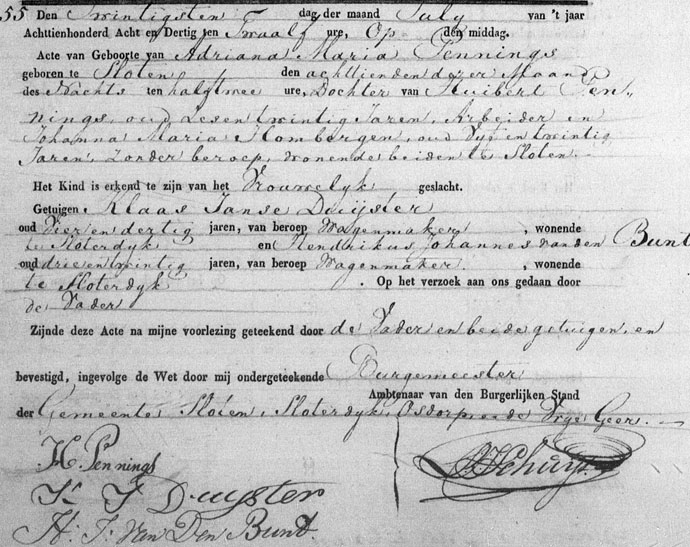 55 Den Twintigsten dag der maand July van 't jaar
Achttienhonderd Acht en Dertig ten Twaalf ure, Op den middag.
Acte van Geboorte van Adriana Maria Pennings
geboren te Sloten den achttienden dezer Maand
des Nachts ten half twee ure, Dochter van Huibert Pen-
nings, oud Zesentwintig Jaren, Arbeider en
Johanna Maria Slombergen, oud Vyf en twintig
Jaren, Zonder beroep, wonende beiden te Sloten.
Het Kind is erkend te zijn van het Vrouwelyk geslacht.
Getuigen Klaas Janse Duijster
oud Vier en dertig jaren, van beroep Wagenmaker, wonende
te Sloterdyk en Hendrikus Johannes van den Bunt
oud drie en twintig jaren, van beroep Wagenmaker, wonende
te Sloterdyk. Op het verzoek aan ons gedaan door
de Vader
Zijnde deze Acte na mijne voorlezing geteekend door de Vader en beide getuigen, en
bevestigd, ingevolge de Wet door mij ondergeteekende Burgemeester
Ambtenaar van den Burgerlijken Stand
der Gemeente Sloten, Sloterdyk, Osdorp en de Vrye Geer.
H. Pennings
K J Duyster
H. J. Van Den Bunt.